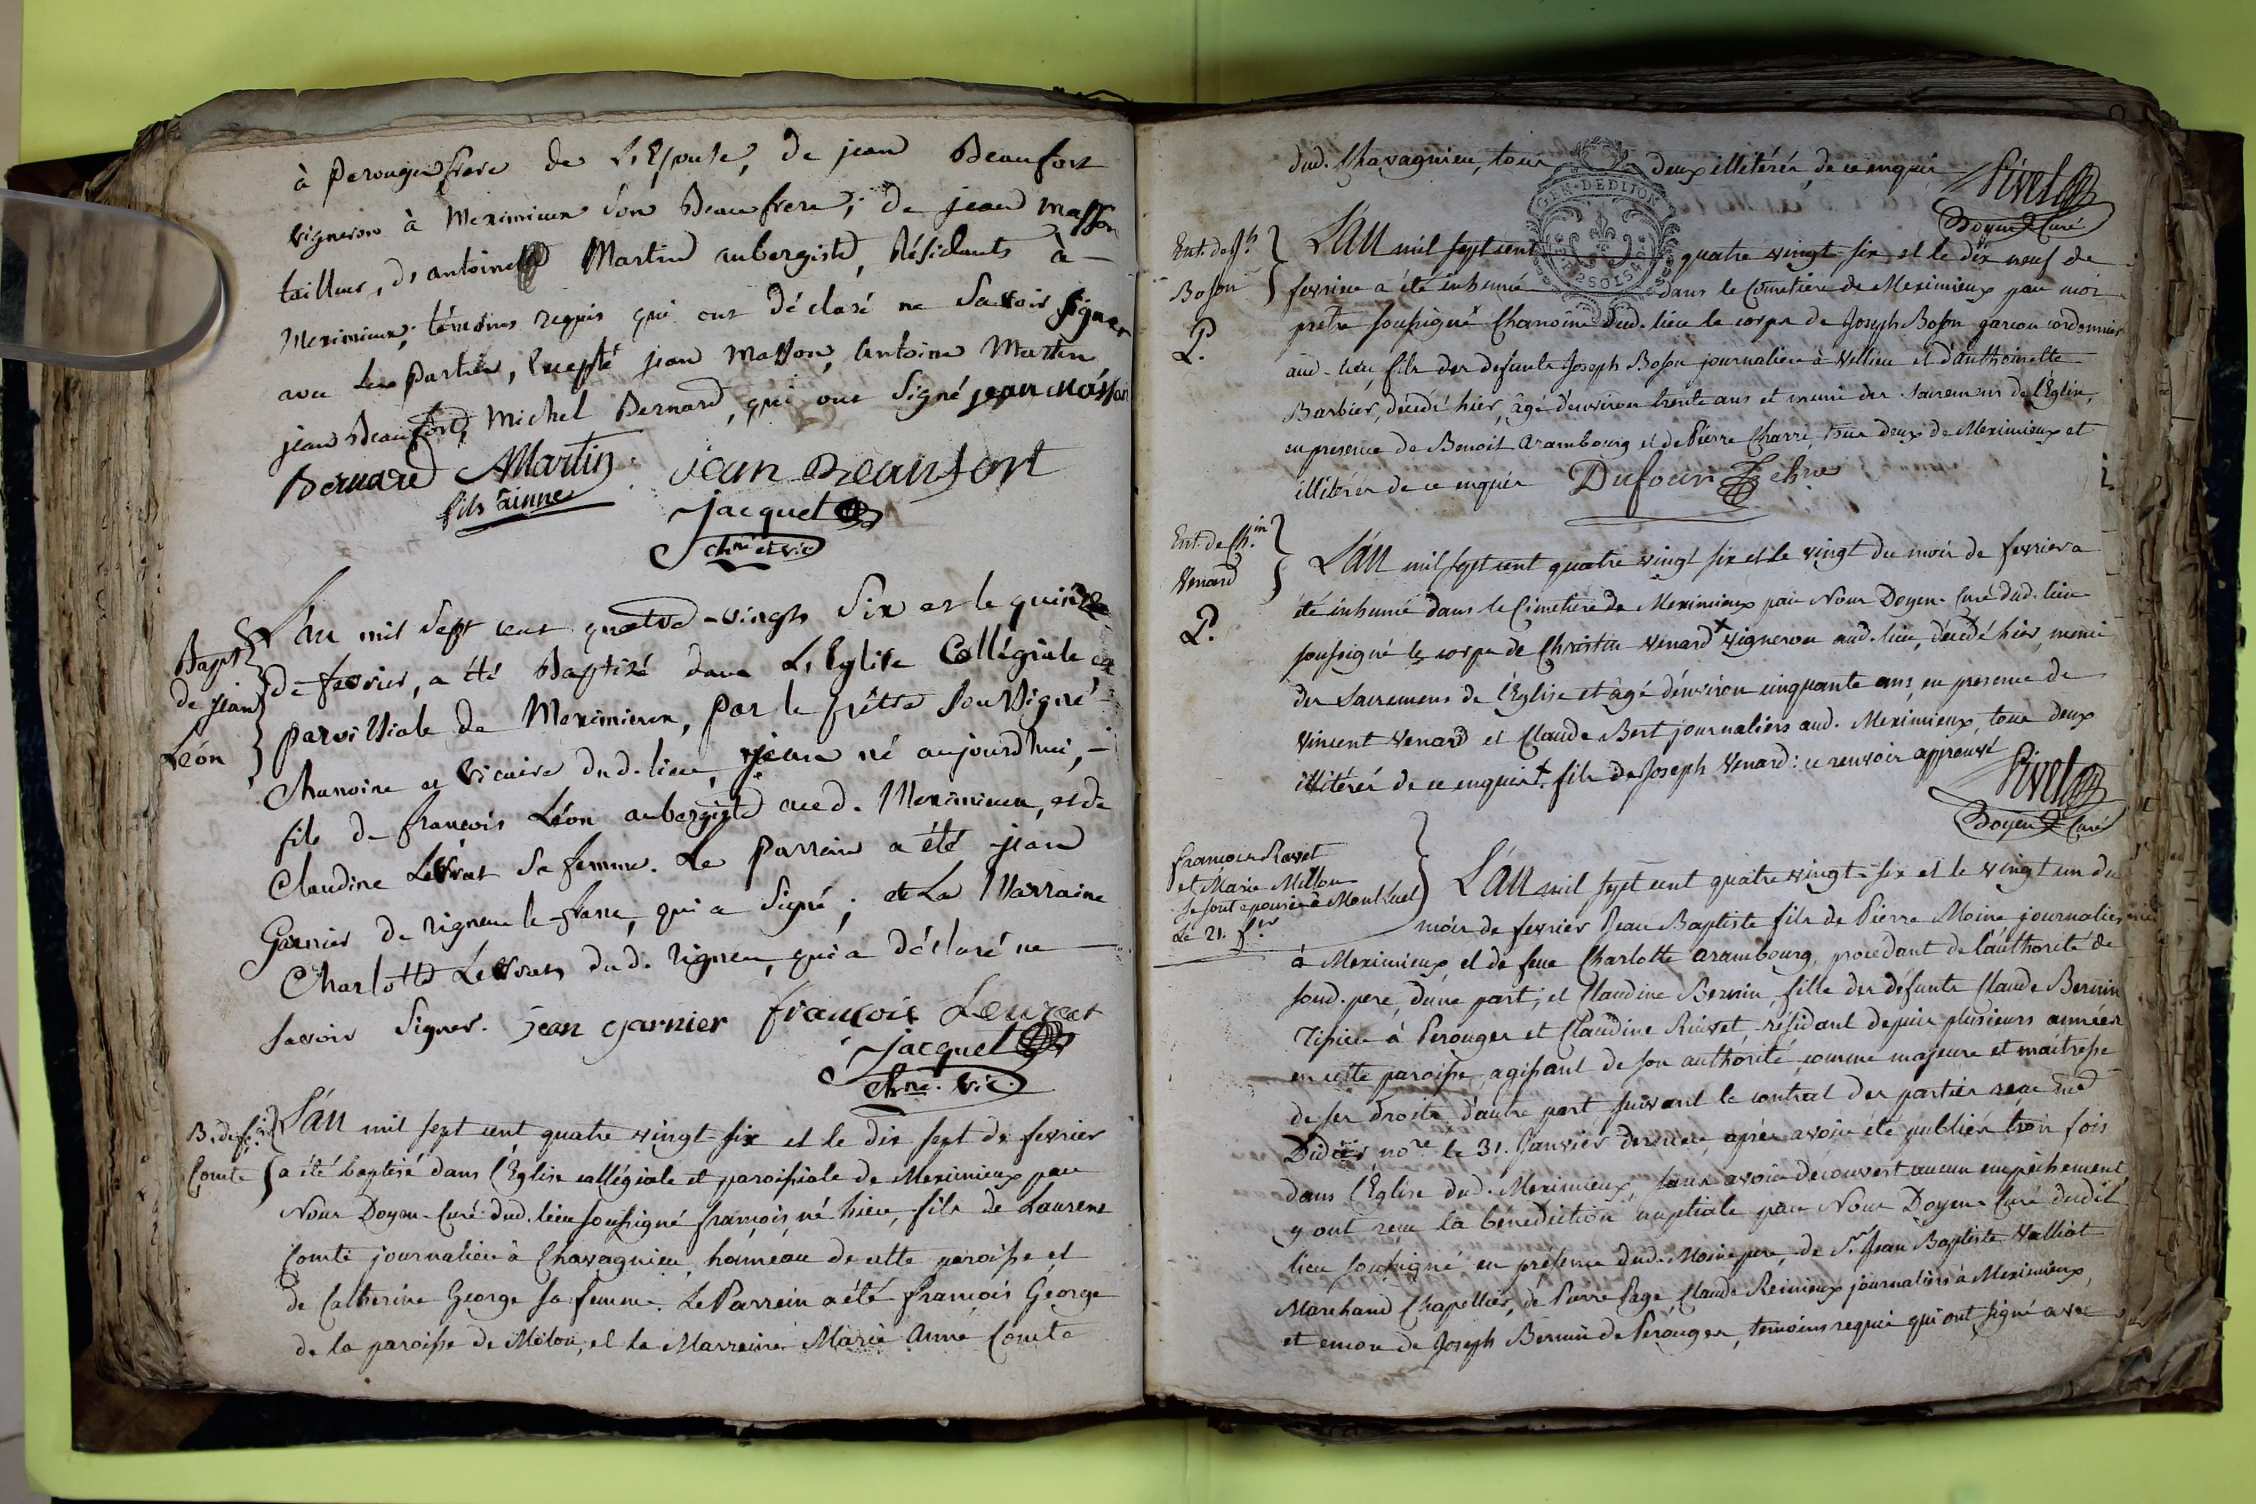 à perouges frere de L'Epouse, de jean Beaufort
vigneron à Meximieux son Beaufrere, de jean Masson
tailleur, d'antoine Martin aubergiste, Résidants à
Meximieux, témoins requis qui ont déclaré ne Savoir signer
avec Les Parties, Excepté jean Masson, antoine Martin
jean Beaufort, Michel Bernard, qui ont Signé jean masson
Bernard AMartin jean Beaufort
fils ainne
Jacquet
chne et vic
Bapt.
de jean
Léon
L'an mil Sept cent quatre-vingts Six et le quinze
de fevrier, a été Baptisé dans L'Eglise Collégiale et
paroissiale de Meximieux, par le prêtre Soussigné
Chanoine et vicaire dud. lieu, jean né aujourd'hui,
fils de francois Léon aubergiste aud. Meximieux, et de
Claudine Levrat Sa femme. Le parrein a été jean
Garnier de rigneu le-franc, qui a Signé; et La Marraine
Charlotte Levrat dud. rigneu, qui a déclaré ne
savoir Signer. jean garnier francois Levrat
Jacquet
chne. vic.
B. de fçois
Comte
L'an mil sept cent quatre vingt-six et le dix sept de fevrier
a été baptisé dans l'Eglise collégiale et paroissiale de Meximieux par
Nous Doyen-Curé dud. lieu soussigné françois né hier, fils de Laurent
Comte journalier à Chavagnieu, hameau de cette paroisse et
de Catherine George sa femme. Le Parrein a été françois George
de la paroisse de Molon, et la Marreine Marie Anne Comte
dud. Chavagnieu, tous deux illetérés, de ce enquis
GEN. DE DIJON
Pivet
Doyen Curé
Ent. de Jh.
Boson
L'an mil sept cent quatre vingt-six et le dix neuf de
fevrier a été inhumé dans le Cimetiere de Meximieux par moi
prêtre soussigné Chanoine dud. lieu le corps de Joseph Boson garcon cordonnier
aud. lieu, fils des defunts Joseph Boson journalier à Villieu et d'anthoinette
Barbier, décédé hier, âgé d'environ trente ans et muni des Sacremens de l'Eglise,
en presence de Benoit arambourg et de Pierre Charre, tous deux de Meximieux et
illiterés de ce enquis Dufour
Ent. de Chin.
Venard
L'an mil sept cent quatre vingt six et le vingt du mois de fevrier a
été inhumé dans le Cimetiere de Meximieux par Nous Doyen-Curé dud. lieu
soussigné le corps de Christin Venard + vigneron aud. lieu, décédé hier, muni
des Sacremens de l'Eglise et âgé d'environ cinquante ans, en presence de
Vincent Venard et Claude Bert journaliers aud. Meximieux, tous deux
illitérés de ce enquis + fils de Joseph Venard: ce renvoir approuvé
Pivet
Doyen Curé
françois Ravet
et Marie Millon
se sont epousés à Montluel
Le 21. fer
L'an mil sept cent quatre vingt-six et le vingt un du
mois de fevrier Jean Baptiste fils de Pierre Moine journalier
à Meximieux, et de feue Charlotte arambourg, procedant de l'authorité de
soud. pere, d'une part; et Claudine Bernin, fille des défunts Claude Bernin
à Perouges et Claudine Ruivet résidant depuis plusieurs années
en cette paroisse, agissant de son authorité, comme majeure et maitresse
de ses droits, d'autre part suivant le contrat des parties recu Me
Didier nore le 31. Janvier dernier, après avoir été publiés trois fois
dans l'Eglise dud. Meximieux, sans avoir découvert aucun empêchement
y ont reçu la bénediction nuptiale par Nous Doyen-Curé dudit
lieu soussigné en présence dud. Moine pere, de Sr. Jean Baptiste Valliat
Marchand Chapellier, de Pierre Page Claude Reimieux journaliers à Meximieux,
et encore de Joseph Bernin de Pérouges, temoins requis qui ont signé avec